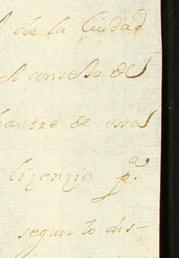 de la Ciudad
consejo de
chantre de essa
lizenzia pª
segun lo dis-